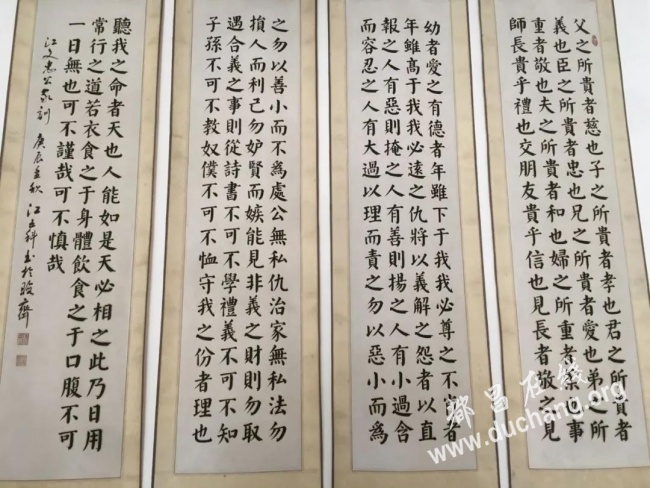 父之所貴者慈也子之所貴者孝也君之所貴者
義也臣之所貴者忠也兄之所貴者愛也弟之所
重者敬也夫之所貴者和也婦之所重者柔也事
師長貴乎禮也交朋友貴乎信也見長者敬之見
幼者愛之有德者年雖下于我我必尊之不肖者
年雖高于我我必遠之仇將以義解之怨者以直
報之人有惡則掩之人有善則揚之人有小過含
而容忍之人有大過以理而責之勿以惡小而為
之勿以善小而不為處公無私仇治家無私法勿
損人而利己勿妒賢而嫉能見非義之財則勿取
遇合義之事則從詩書不可不學禮義不可不知
子孫不可不教奴僕不可不恤守我之份者理也
聽我之命者天也人能如是天必相之此乃日用
常行之道若衣食之于身體飲食之于口腹不可
一日無也可不謹哉可不慎哉
江文忠公家訓 庚辰孟秋 江 科書於 齋
都昌在线
www.duchang.org